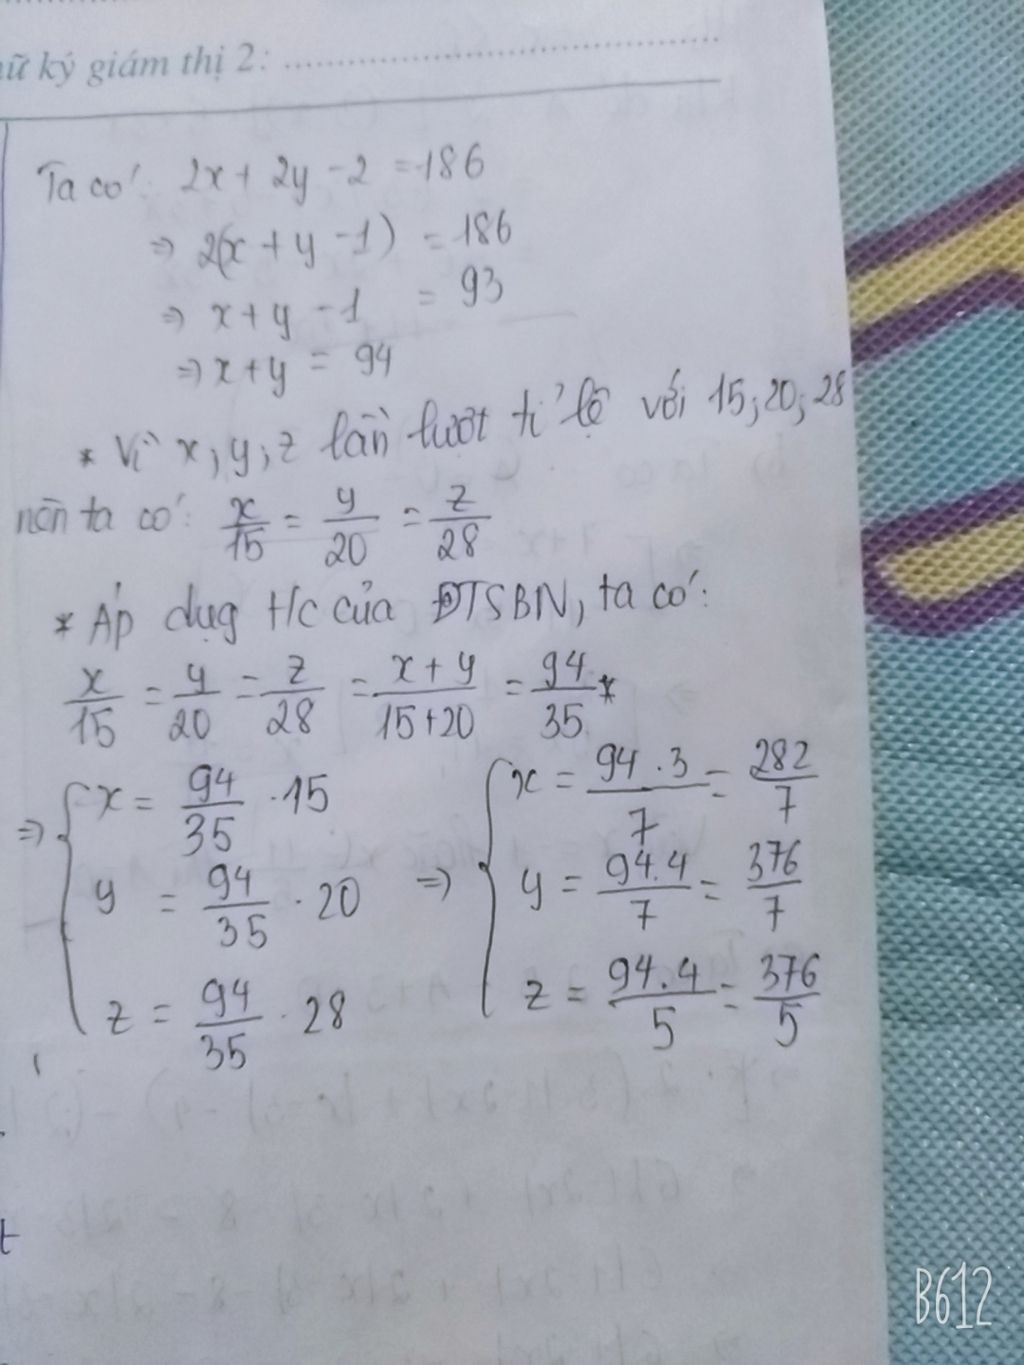 ữ ký giám thị 2: ..........
Ta có: 2x + 2y - 2 = 186
⇒ 2(x + y - 1) = 186
⇒ x + y - 1 = 93
⇒ x + y = 94
* Vì x, y, z lần lượt tỉ lệ với 15; 20; 28
nên ta có: x/15 = y/20 = z/28
* Áp dụg t/c của ĐTSBN, ta có:
x/15 = y/20 = z/28 = (x + y)/(15+20) = 94/35 *
⇒ { x = 94/35 · 15 ⇒ { x = (94 . 3)/7 = 282/7
y = 94/35 · 20 y = (94.4)/7 = 376/7
z = 94/35 · 28 z = (94.4)/5 = 376/5
t
B612